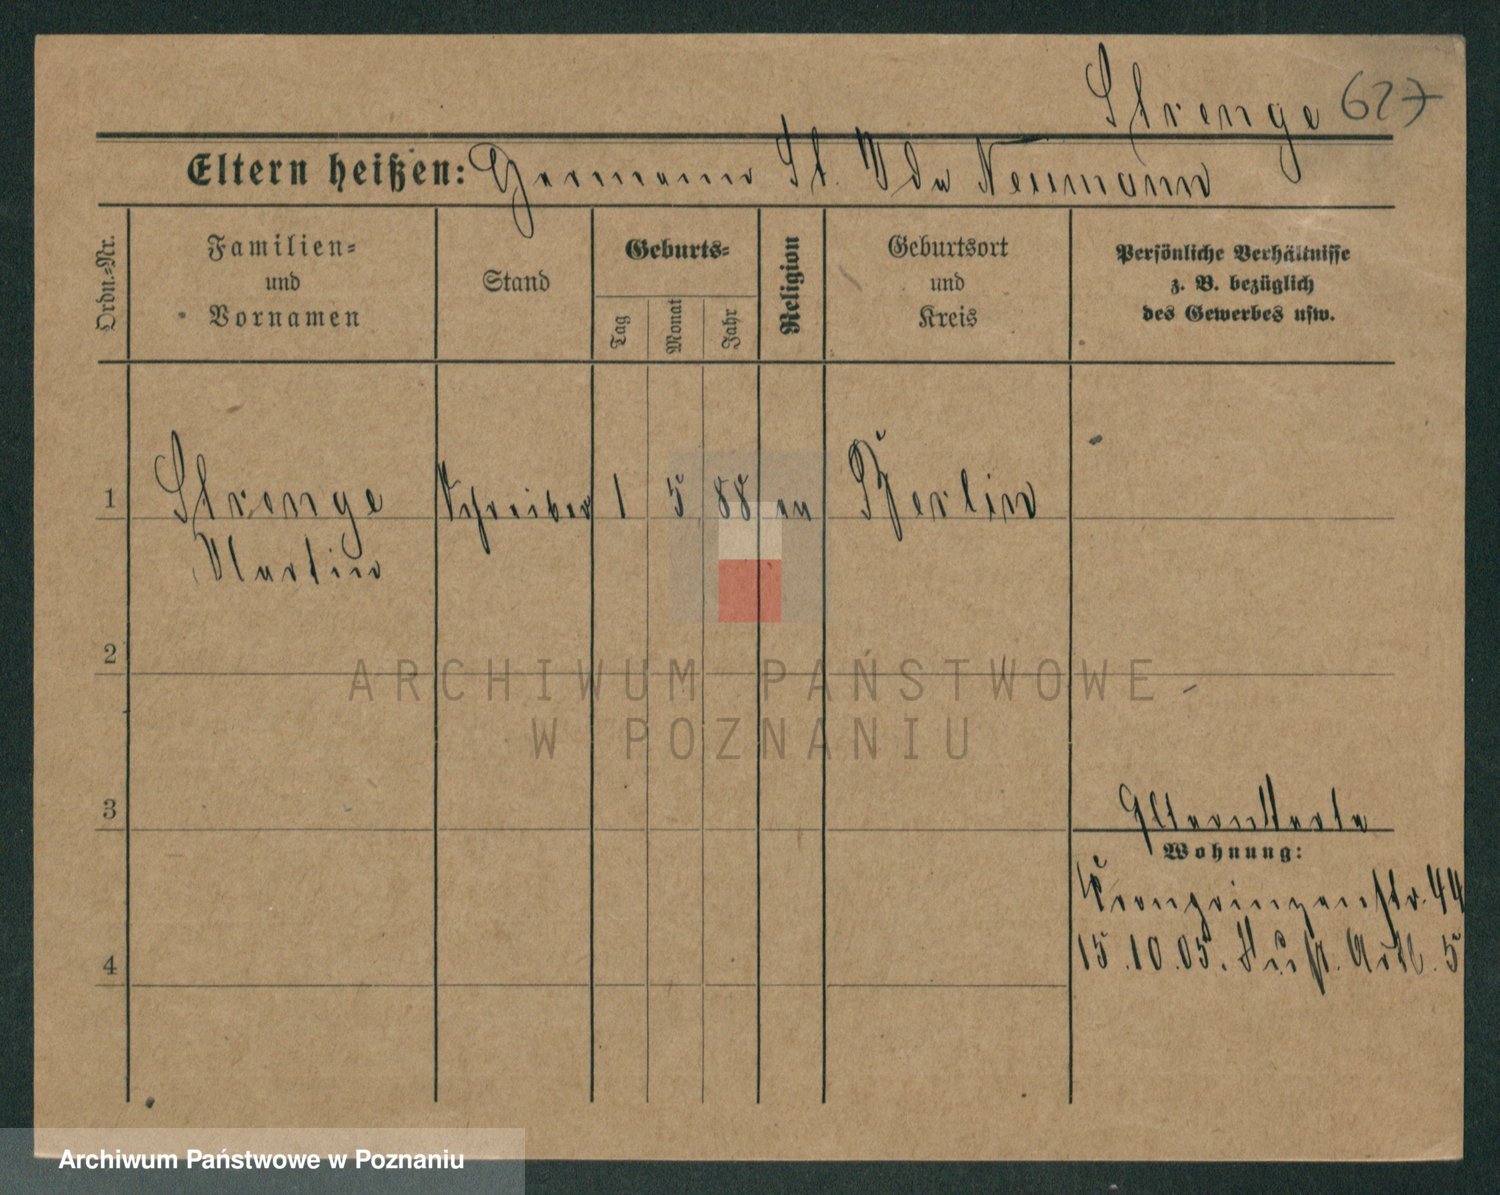 Strenge 627
Eltern heißen: Hermann St. Ida Neumann
Ordn.-Nr.
Familien-
und
Vornamen
Stand
Geburts-
Tag
Monat
Jahr
Religion
Geburtsort
und
Kreis
Persönliche Verhältnisse
z. B. bezüglich
des Gewerbes usw.
1 Strenge Schreiber 1 5 88 ev Berlin
Martin
2
3
Wohnung:
Kronprinzenstr. 44
15.10.05. 5
4
ARCHIWUM PAŃSTWOWE
W POZNANIU
Archiwum Państwowe w Poznaniu